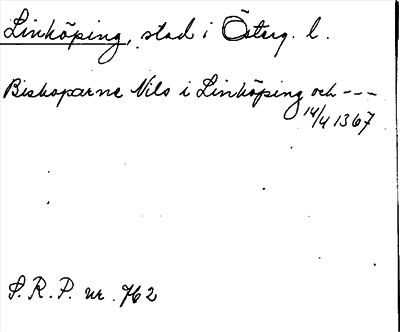 Linköping, stad i Österg. l.
Biskoparne Nils i Linköping och ---
14/4 1367
S. R. P. nr. 762